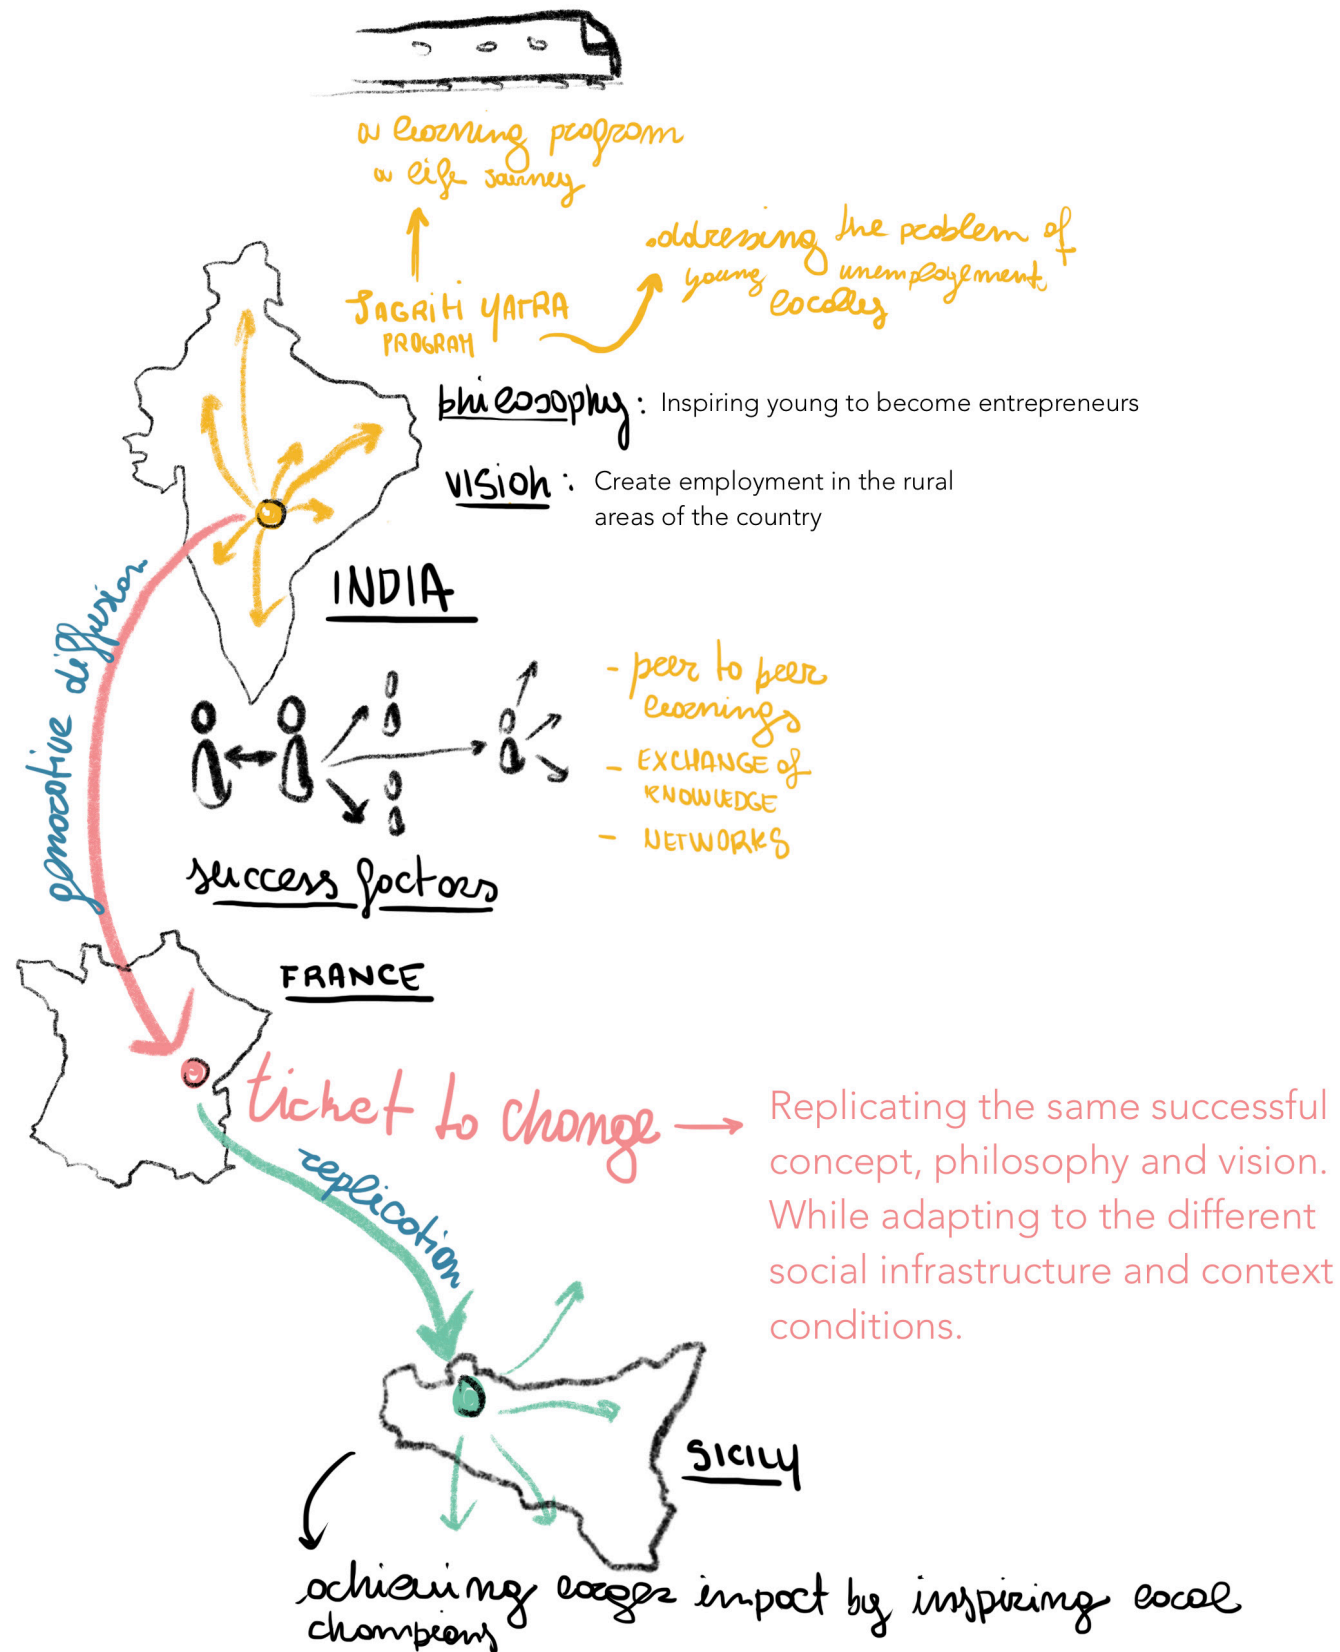 a learning program
a life journey
JAGRITI YATRA
PROGRAM
addressing the problem of
young unemployement
locally
philosophy: Inspiring young to become entrepreneurs
vision: Create employment in the rural
areas of the country
INDIA
genorotive diffusion
- peer to peer
learnings
- EXCHANGE of
KNOWLEDGE
- NETWORKS
success factors
FRANCE
ticket to change
Replicating the same successful
concept, philosophy and vision.
While adapting to the different
social infrastructure and context
conditions.
replication
SICILY
achieving larger impact by inspiring local
champions